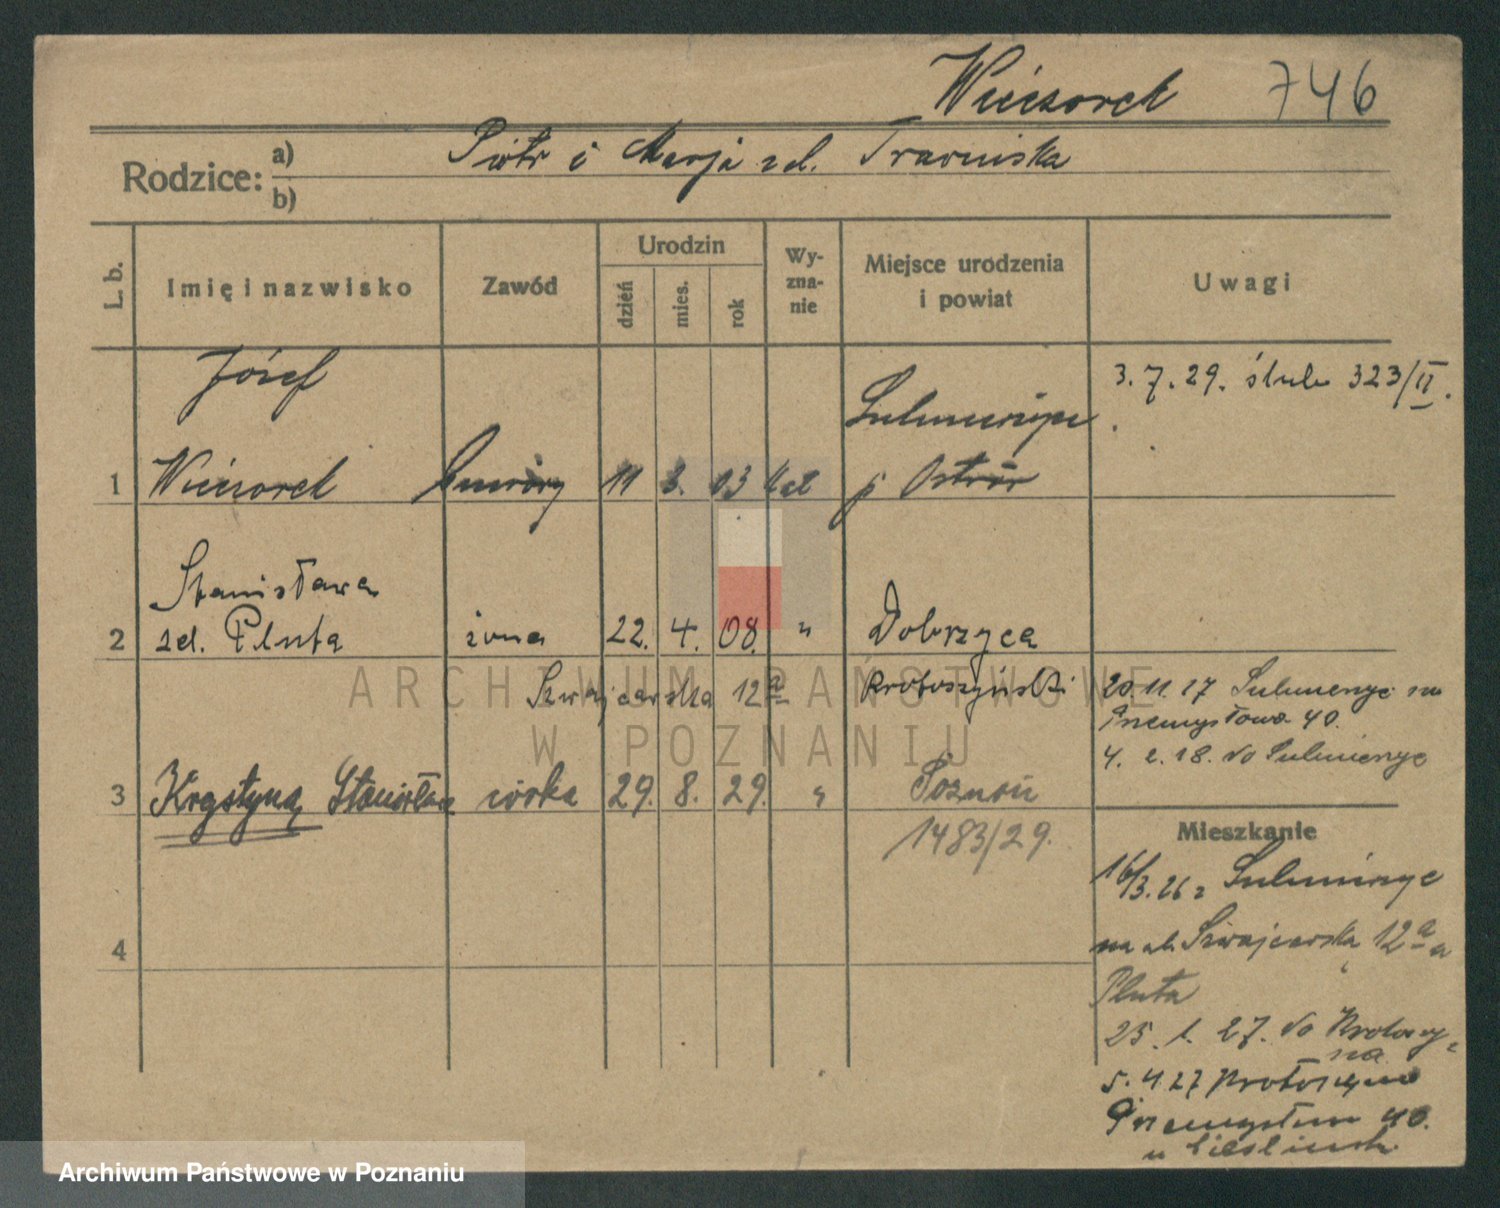 Wieczorek 746
Rodzice: a) Piotr i Marja zd.
b)
L. b.
Imię i nazwisko
Zawód
Urodzin
dzień
mies.
rok
Wy-
zna-
nie
Miejsce urodzenia
i powiat
Uwagi
Józef
3. 7. 29. ślub 323/II.
1 Wieczorek 11 3. 03 kat
p Ostrów
Stanisława
2 zd. Pluta żona 22. 4. 08. " Dobrzyca
Szwajcarska 12a Krotoszyński
20.11.27
Przemysłowa 40.
4. 2. 28. do Sulmierzyc
3 Krystyna Stanisława córka 29. 8. 29. " Poznań
1483/29.
Mieszkanie
16/3. 26 z Sulmierzyc
na ul. Szwajcarska 12a u
4
Pluta
25. 1. 27. do Krotoszy-
na
5. 4. 27 Krotoszyna
40.
ARCHIWUM PAŃSTWOWE
W POZNANIU
Archiwum Państwowe w Poznaniu